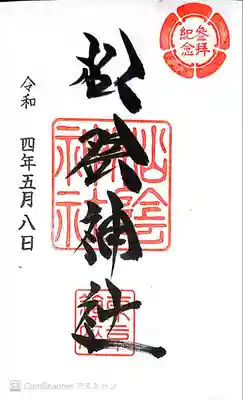 參拜
紀念
松陰神社
令和 四年五月八日
松陰
神社
CS CamScanner でスキャン